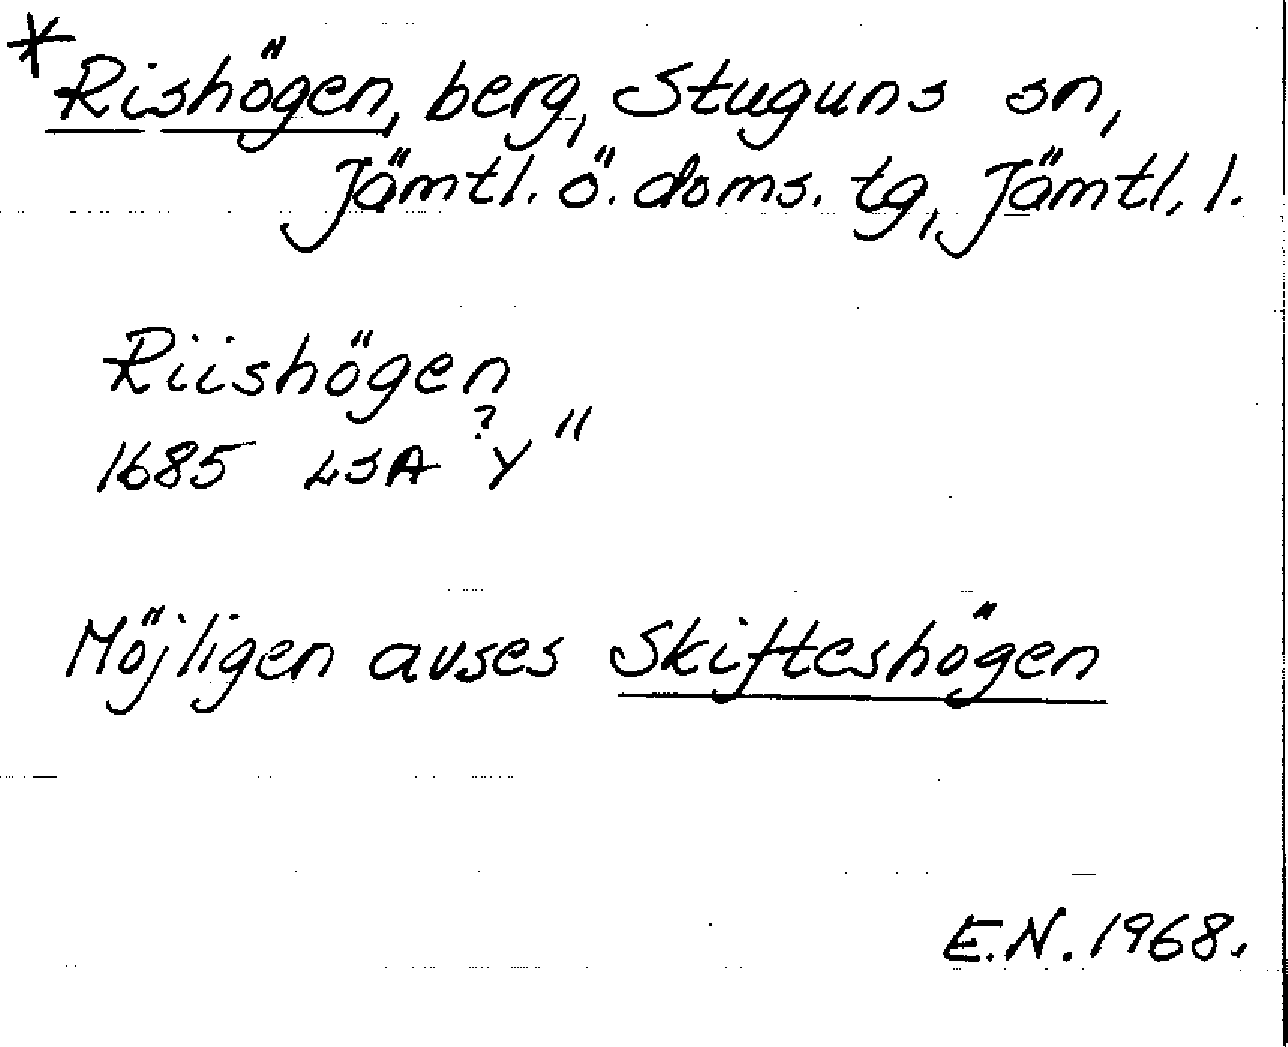 *Rishögen, berg, Stuguns sn,
Jämtl. ö. doms. tg, Jämtl. l.
Riishögen
1685 LSA ?Y"
Möjligen avses Skifteshögen
E.N. 1968.